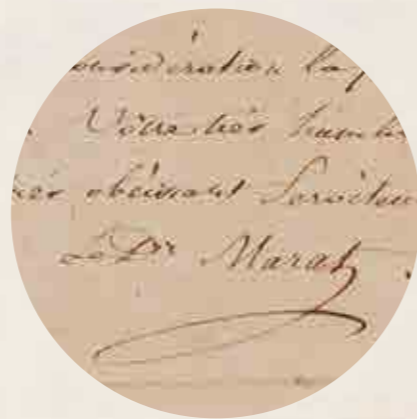 considération la p
Votre très humble
très obéissant Serviteur
Le Dr Marat